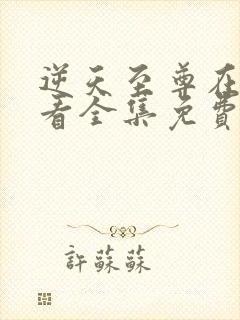 逆天至尊在
看全集免費
許蘇蘇